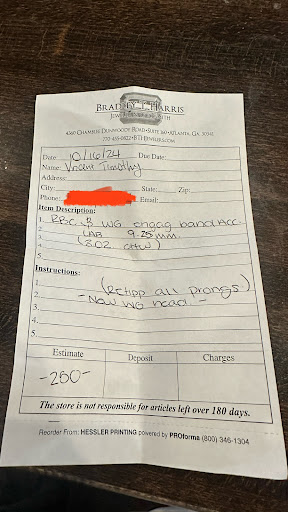 BRADLEY J. HARRIS
4560 CHAMBLEE DUNWOODY ROAD • SUITE • ATLANTA, GA
770-455-
Date 10/16/24 Due Date:
Name: Vincent Timothy
Address:
City: State: Zip:
Phone: Email:
Item Description:
1. RBC & WG engag band ACC
2. LAB 9.25 mm
3. (3.02 CTTW)
4.
5.
Instructions:
1.
2. (Retipp all prongs)
3. - New WG head -
4.
5.
Estimate Deposit Charges
-250-
The store is not responsible for articles left over 180 days.
Reorder From: HESSLER PRINTING powered by PROforma (800) 346-1304